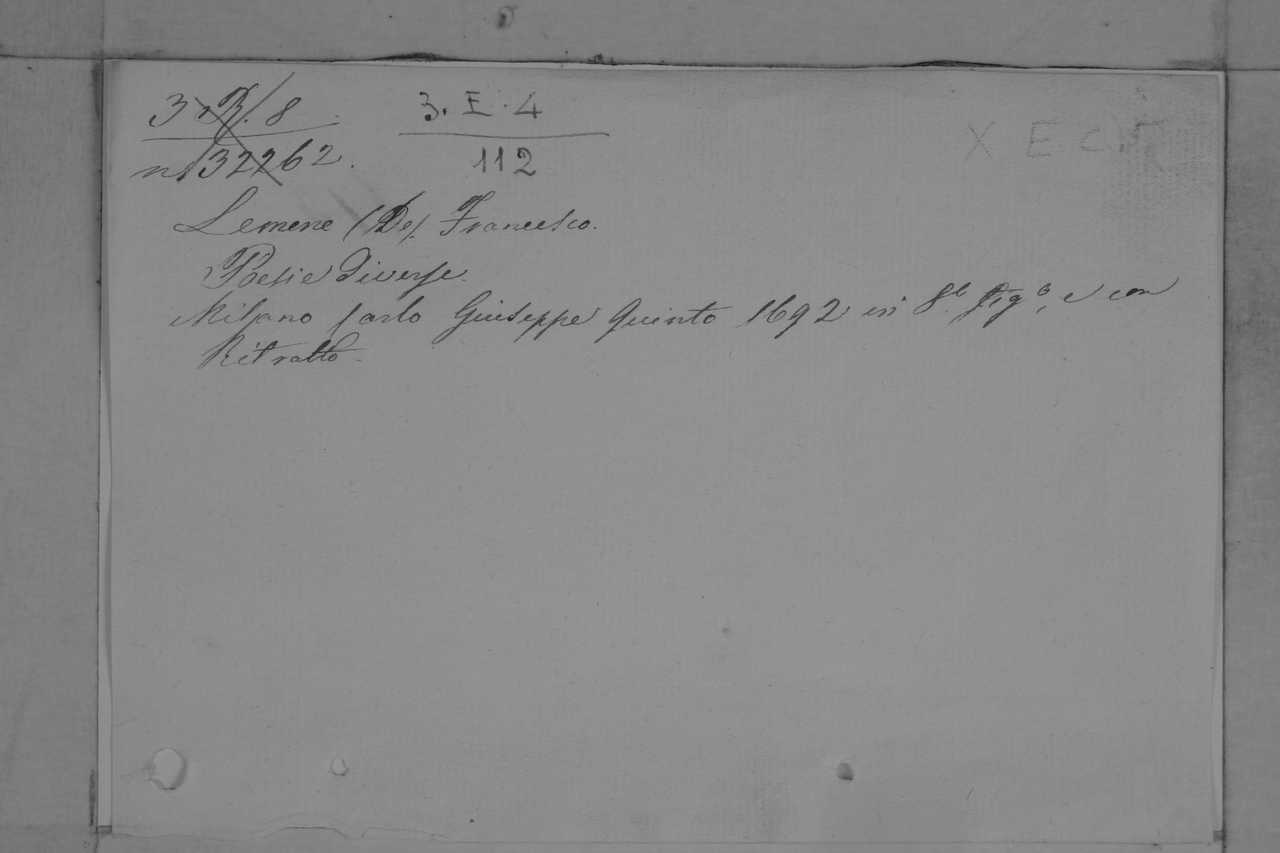 3. B. 8. 3. E. 4
n. 32262. 112
X E C
Lemene (De) Francesco.
Poesie diverse.
Milano Carlo Giuseppe Quinto 1692 in 8.º fig.º, e con
Ritratto.